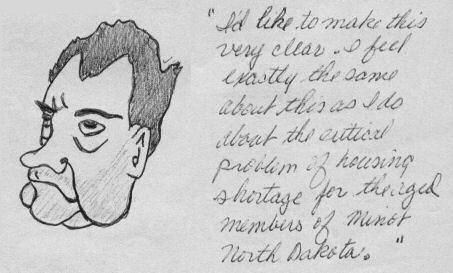 "I'd like to make this
very clear. I feel
exactly the same
about this as I do
about the critical
problem of housing
shortage for the aged
members of Minot
North Dakota. "